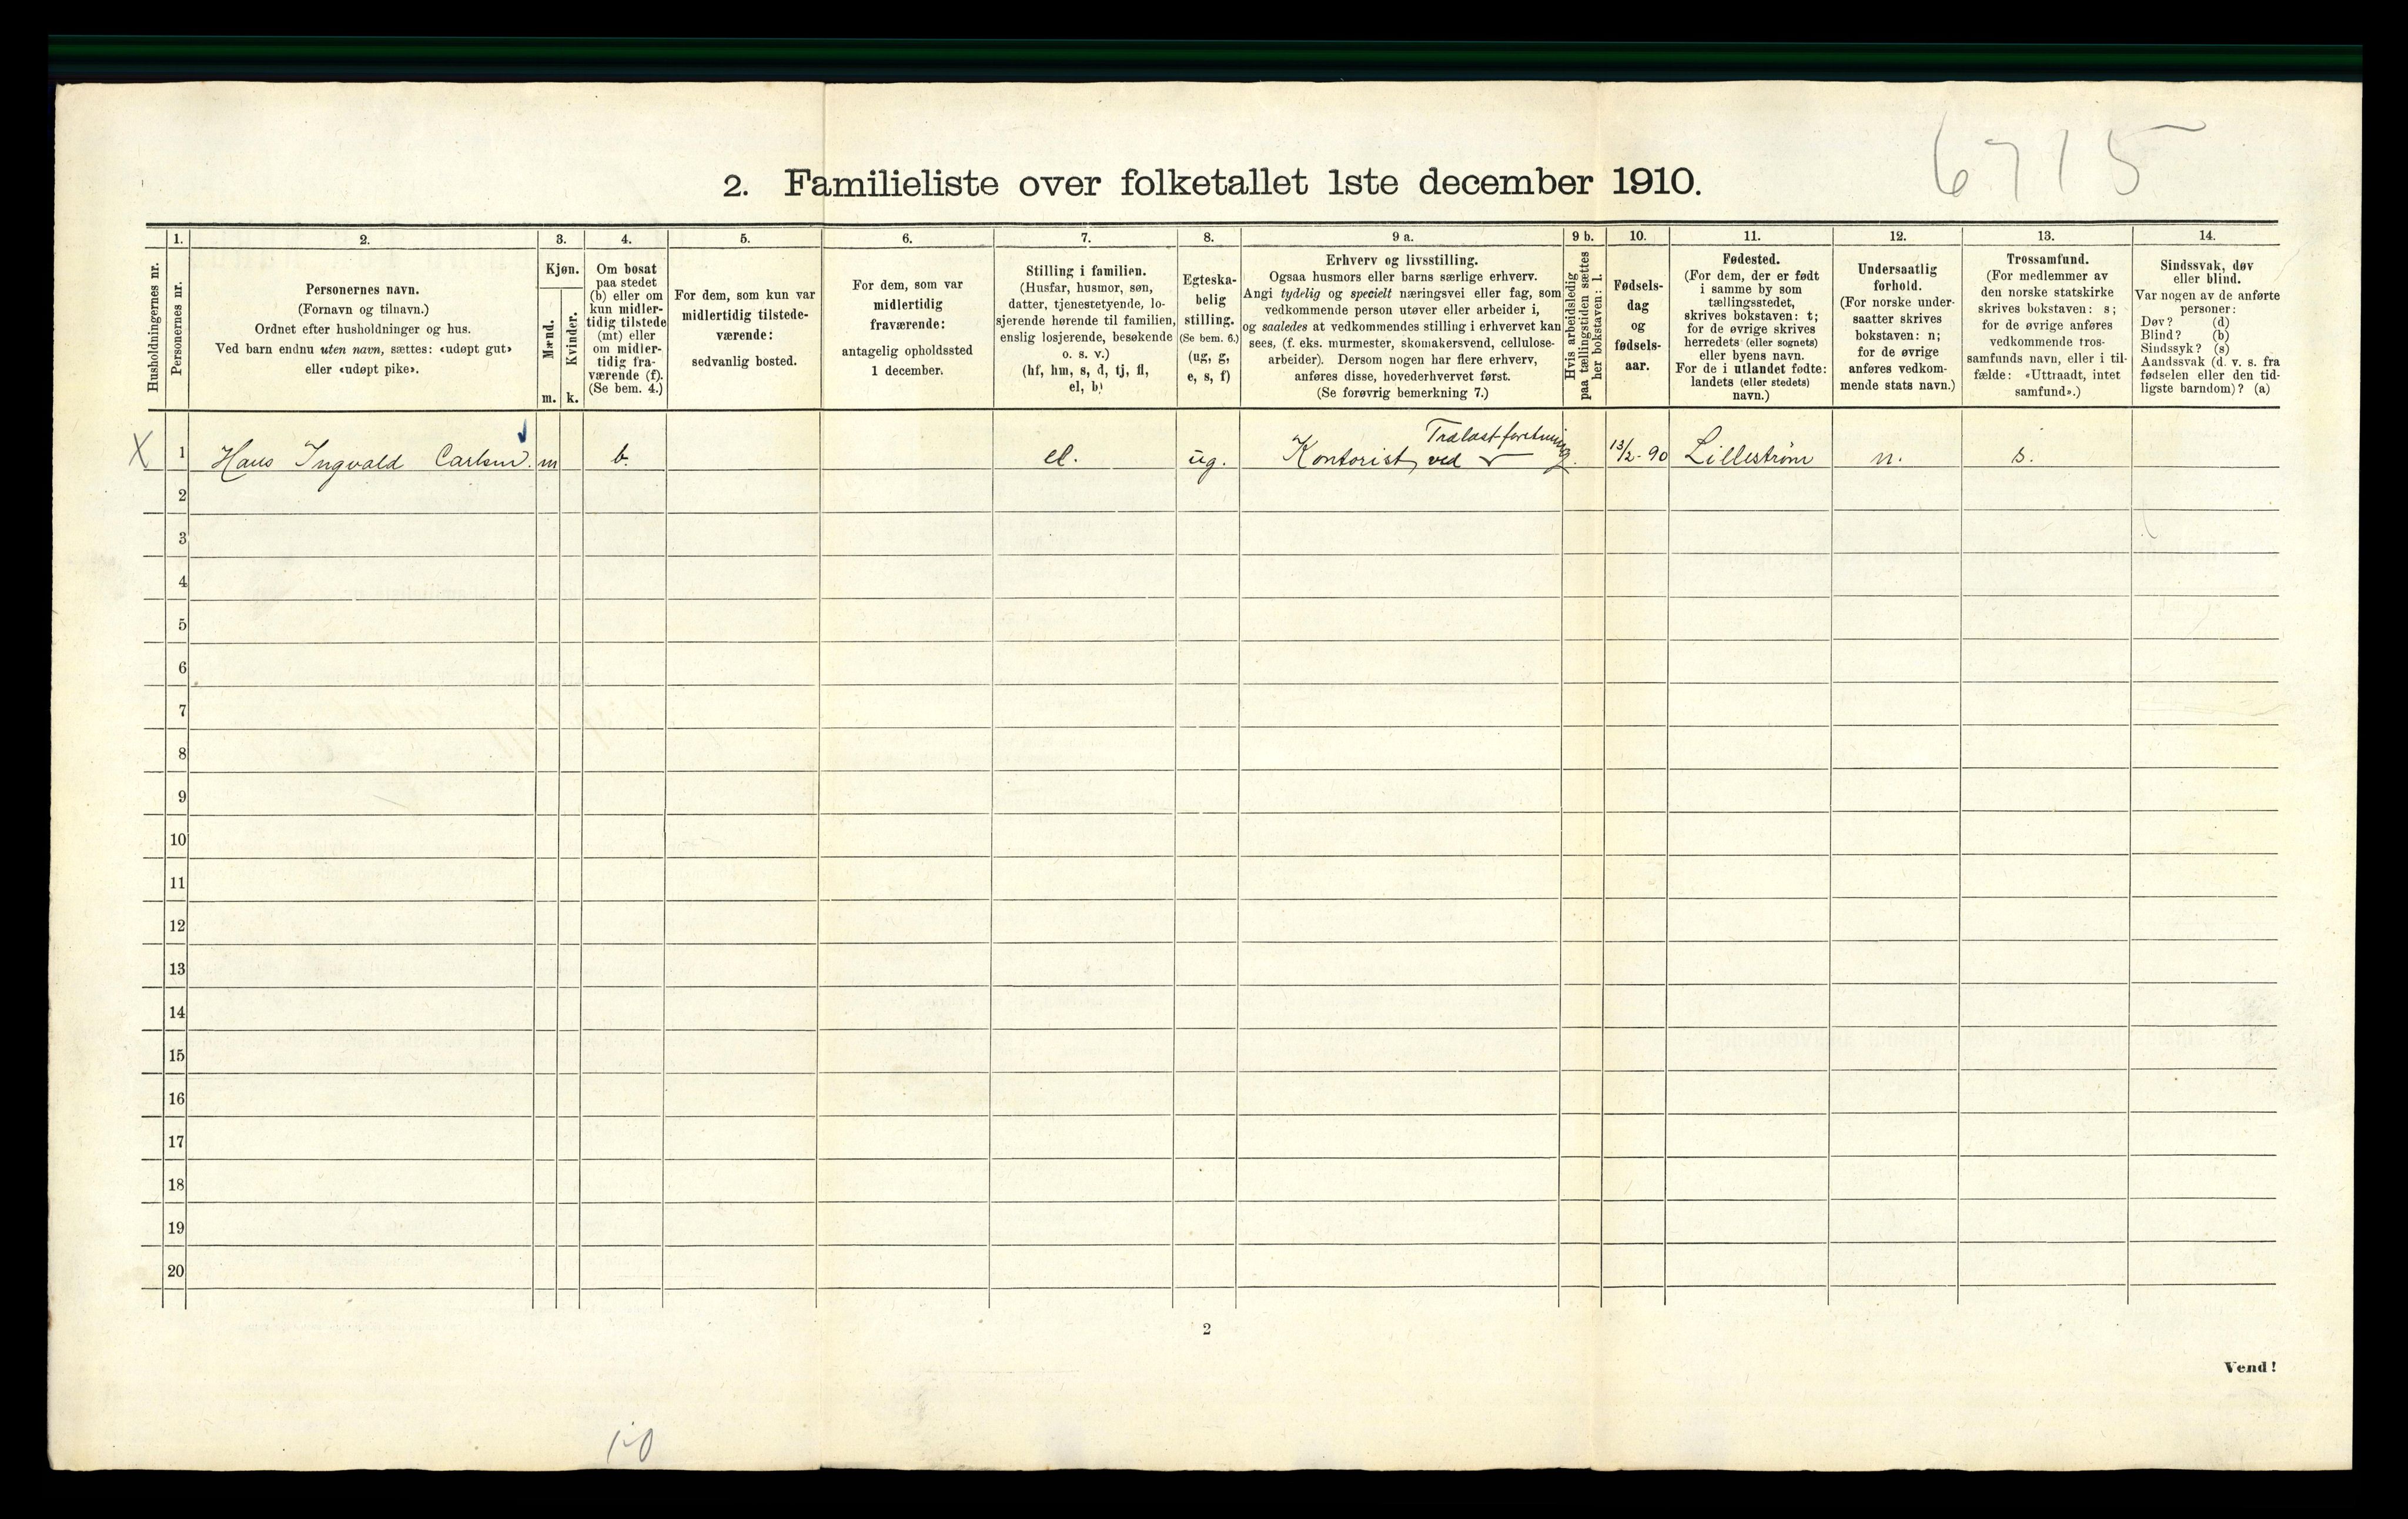 6715
2. Familieliste over folketallet 1ste december 1910.
Husholdningernes nr.
1.
Personernes nr.
2.
Personernes navn.
(Fornavn og tilnavn.)
Ordnet efter husholdninger og hus.
Ved barn endnu uten navn, sættes: «udøpt gut»
eller «udøpt pike».
3.
Kjøn.
Mænd.
Kvinder.
m.
k.
4.
Om bosat
paa stedet
(b) eller om
kun midler-
tidig tilstede
(mt) eller
om midler-
tidig fra-
værende (f).
(Se bem. 4.)
5.
For dem, som kun var
midlertidig tilstede-
værende:
sedvanlig bosted.
6.
For dem, som var
midlertidig
fraværende:
antagelig opholdssted
1 december.
7.
Stilling i familien.
(Husfar, husmor, søn,
datter, tjenestetyende, lo-
sjerende hørende til familien,
enslig losjerende, besøkende
o. s. v.)
(hf, hm, s, d, tj, fl,
el, b)
8.
Egteska-
belig
stilling.
(Se bem. 6.)
(ug, g,
e, s, f)
9 a.
Erhverv og livsstilling.
Ogsaa husmors eller barns særlige erhverv.
Angi tydelig og specielt næringsvei eller fag, som
vedkommende person utøver eller arbeider i,
og saaledes at vedkommendes stilling i erhvervet kan
sees, (f. eks. murmester, skomakersvend, cellulose-
arbeider). Dersom nogen har flere erhverv,
anføres disse, hovederhvervet først.
(Se forøvrig bemerkning 7.)
9 b.
Hvis arbeidsledig
paa tællingstiden sættes
her bokstaven: l.
10.
Fødsels-
dag
og
fødsels-
aar.
11.
Fødested.
(For dem, der er født
i samme by som
tællingsstedet,
skrives bokstaven: t;
for de øvrige skrives
herredets (eller sognets)
eller byens navn.
For de i utlandet fødte:
landets (eller stedets)
navn.)
12.
Undersaatlig
forhold.
(For norske under-
saatter skrives
bokstaven: n;
for de øvrige
anføres vedkom-
mende stats navn.)
13.
Trossamfund.
(For medlemmer av
den norske statskirke
skrives bokstaven: s;
for de øvrige anføres
vedkommende tros-
samfunds navn, eller i til-
fælde: «Uttraadt, intet
samfund».)
14.
Sindssvak, døv
eller blind.
Var nogen av de anførte
personer:
Døv? (d)
Blind? (b)
Sindssyk? (s)
Aandssvak (d. v. s. fra
fødselen eller den tid-
ligste barndom)? (a)
X 1 Hans Ingvald Carlsen. m b. el. ug. Kontorist, ved Trælastforetning. 13/2-90 Lillestrøm n. s.
2
3
4
5
6
7
8
9
10
11
12
13
14
15
16
17
18
19
20
2
Vend!
1-0